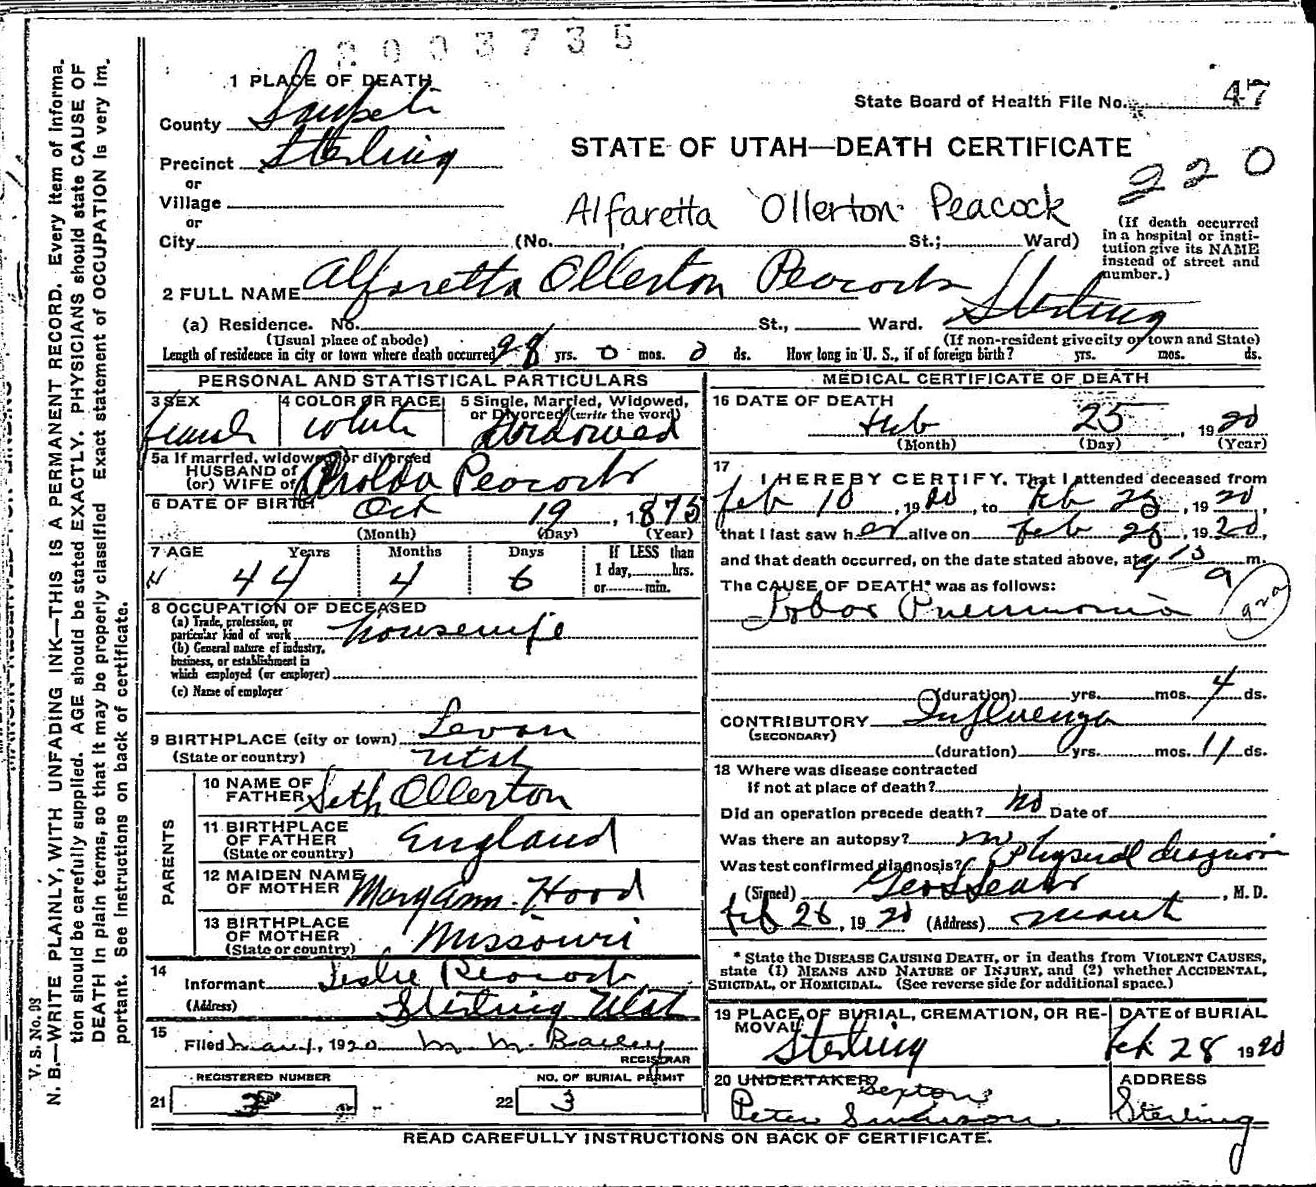 2003735
1 PLACE OF DEATH
State Board of Health File No. 47
County Sanpete
STATE OF UTAH—DEATH CERTIFICATE
Precinct Sterling
or
220
Village
Alfaretta Ollerton Peacock
or
(If death occurred in a hospital or institution give its NAME instead of street and number.)
City (No. , St.; Ward)
2 FULL NAME Alfaretta Ollerton Peacock
(a) Residence. No. St., Ward. Sterling
(Usual place of abode) (If non-resident give city or town and State)
Length of residence in city or town where death occurred 28 yrs. 0 mos. 0 ds. How long in U. S., if of foreign birth? yrs. mos. ds.
PERSONAL AND STATISTICAL PARTICULARS
3 SEX female
4 COLOR OR RACE white
5 Single, Married, Widowed, or Divorced (write the word) Widowed
5a If married, widowed or divorced
HUSBAND of
(or) WIFE of Peacock
6 DATE OF BIRTH Oct 19, 1875
(Month) (Day) (Year)
7 AGE Years Months Days If LESS than
44 4 6 1 day, hrs.
or min.
8 OCCUPATION OF DECEASED
(a) Trade, profession, or particular kind of work housewife
(b) General nature of industry, business, or establishment in which employed (or employer)
(c) Name of employer
9 BIRTHPLACE (city or town) Levan
(State or country) Utah
PARENTS
10 NAME OF FATHER Seth Ollerton
11 BIRTHPLACE OF FATHER England
(State or country)
12 MAIDEN NAME OF MOTHER Mary ann Hood
13 BIRTHPLACE OF MOTHER Missouri
(State or country)
14 Informant Leslie Peacock
(Address) Sterling Utah
15 Filed Mar 1, 1920 M. M. Bailey
REGISTRAR
REGISTERED NUMBER NO. OF BURIAL PERMIT
21 3 22 3
MEDICAL CERTIFICATE OF DEATH
16 DATE OF DEATH
Feb 25, 1920
(Month) (Day) (Year)
17 I HEREBY CERTIFY, That I attended deceased from
Feb 10, 1920, to Feb 25, 1920,
that I last saw her alive on Feb 25, 1920,
and that death occurred, on the date stated above, at 9 15 a m.
The CAUSE OF DEATH* was as follows:
Lobar Pneumonia
(duration) yrs. mos. 4 ds.
CONTRIBUTORY Influenza
(SECONDARY)
(duration) yrs. mos. 11 ds.
18 Where was disease contracted
If not at place of death?
Did an operation precede death? no Date of
Was there an autopsy? no
Was test confirmed diagnosis? physical
(Signed) M. D.
Feb 26, 1920 (Address) Manti
* State the DISEASE CAUSING DEATH, or in deaths from VIOLENT CAUSES,
state (1) MEANS AND NATURE OF INJURY, and (2) whether ACCIDENTAL,
SUICIDAL, or HOMICIDAL. (See reverse side for additional space.)
19 PLACE OF BURIAL, CREMATION, OR REMOVAL Sterling
DATE of BURIAL Feb 28 1920
20 UNDERTAKER Sexton
Peter Swenson
ADDRESS
Sterling
READ CAREFULLY INSTRUCTIONS ON BACK OF CERTIFICATE.
V. S. No. 98
N. B.—WRITE PLAINLY, WITH UNFADING INK—THIS IS A PERMANENT RECORD. Every item of informa-
tion should be carefully supplied. AGE should be stated EXACTLY. PHYSICIANS should state CAUSE OF
DEATH in plain terms, so that it may be properly classified Exact statement of OCCUPATION is very im-
portant. See instructions on back of certificate.